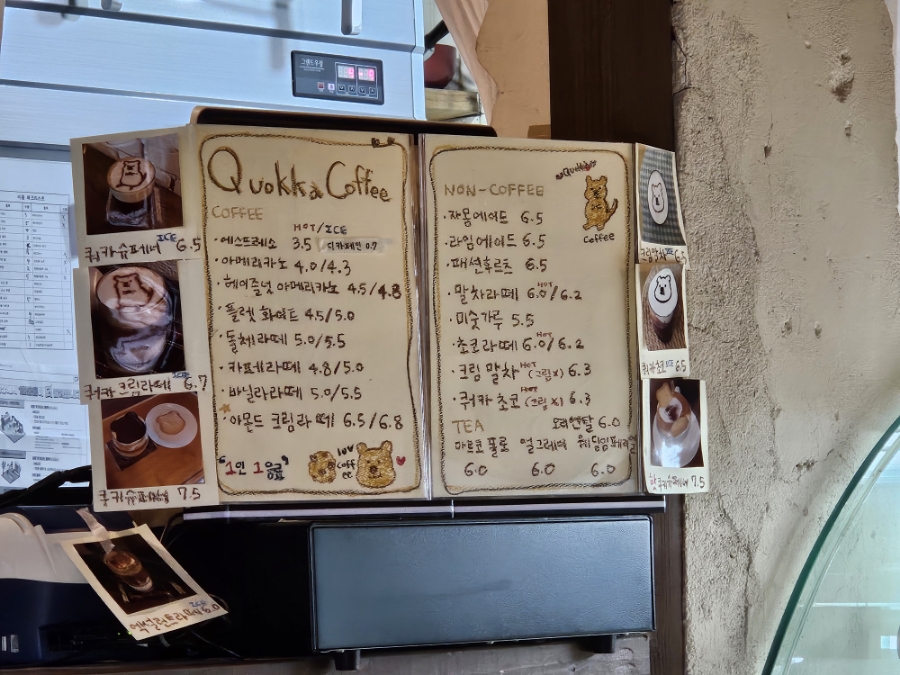 쿼카슈페너 ICE 6.5
쿼카크림라떼 ICE 6.7
쿼카슈페너 7.5
Quokka Coffee
COFFEE
HOT/ICE
·에스프레소 3.5 디카페인 0.7
·아메리카노 4.0/4.3
·헤이즐넛 아메리카노 4.5/4.8
·플랫 화이트 4.5/5.0
·돌체라떼 5.0/5.5
·카페라떼 4.8/5.0
·바닐라라떼 5.0/5.5
·아몬드 크림라떼 6.5/6.8
"1인 1음료"
lov
coff
ee
Quokka
NON-COFFEE
Coffee
·자몽에이드 6.5
·라임에이드 6.5
·패션후르츠 6.5
·말차라떼 HOT 6.0/6.2
·미숫가루 5.5
·초코라떼 HOT 6.0/6.2
·크림 말차 HOT (크림X) 6.3
·쿼카 초코 HOT (크림X) 6.3
TEA 오리엔탈 6.0
마르코폴로 얼그레이 웨딩임페리얼
6.0 6.0 6.0
크림말차 ICE 6.5
쿼카초코 ICE 6.5
7.5
ICE 6.0